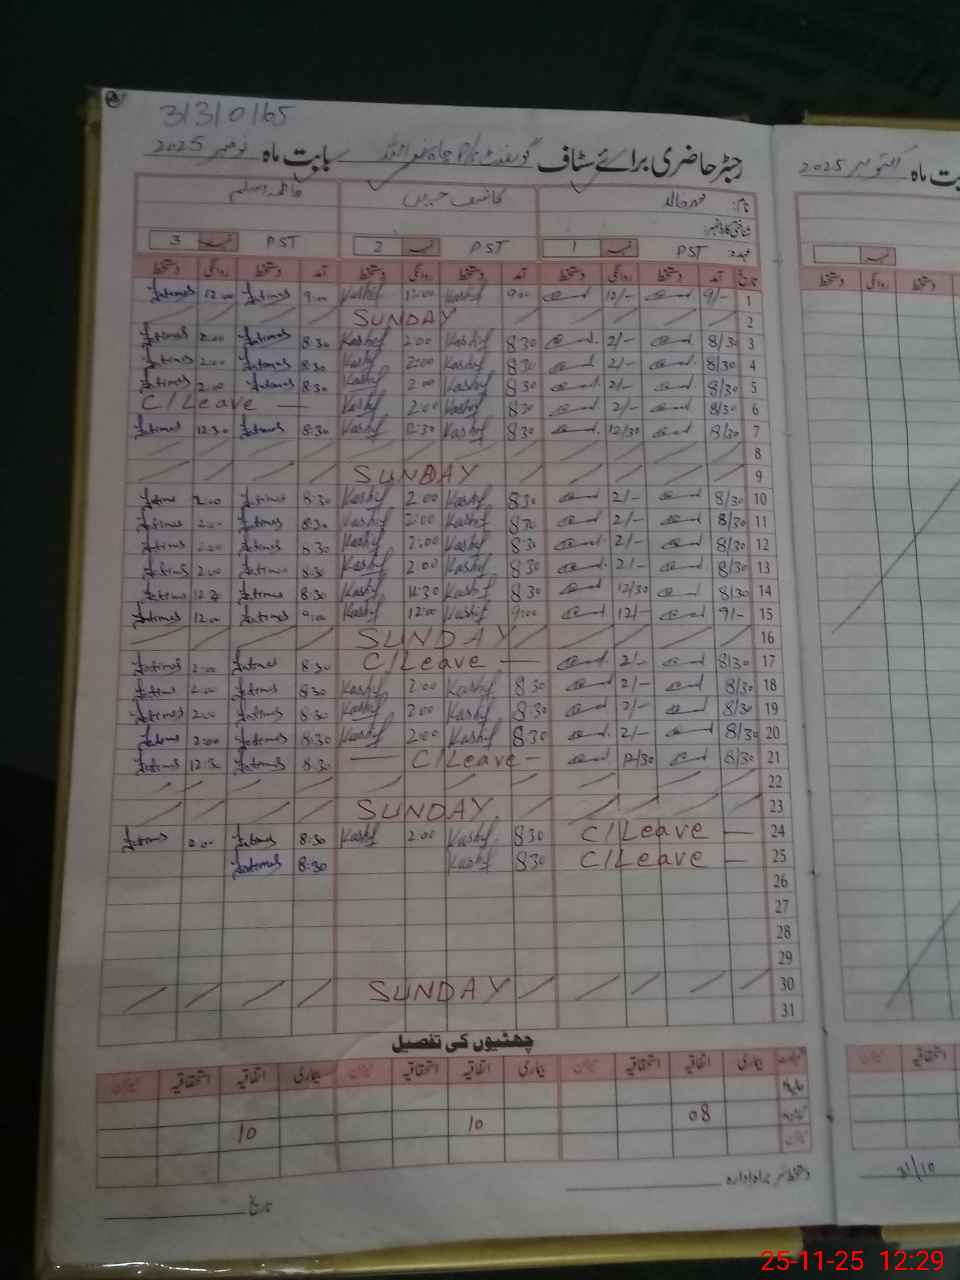 31310165
رجسٹر حاضری برائے سٹاف گورنمنٹ P/S چاہ بابت ماہ نومبر 2025
نام: محمد خالد کاشف حسین فاطمہ اسلم
شناختی کارڈ نمبر:
عہدہ: PST نمبر 1 PST نمبر 2 PST نمبر 3
تاریخ آمد دستخط روانگی دستخط آمد دستخط روانگی دستخط آمد دستخط روانگی دستخط
1 9/- 12/- 9 00 Kashif 12:00 Kashif 9:00 fatima 12:00 fatima
2 SUNDAY
3 8/30 2/- 8 30 Kashif 2 00 Kashif 8:30 fatima 2:00 fatima
4 8/30 2/- 8 30 Kashif 2:00 Kashif 8:30 fatima 2:00 fatima
5 8/30 2/- 8 30 Kashif 2 00 Kashif 8:30 fatima 2:00 fatima
6 8/30 2/- 8 30 Kashif 2:00 Kashif C/Leave —
7 8/30 12/30 8 30 Kashif 12:30 Kashif 8:30 fatima 12:30 fatima
8
9 SUNDAY
10 8/30 2/- 8 30 Kashif 2 00 Kashif 8:30 fatima 2:00 fatima
11 8/30 2/- 8 30 Kashif 2:00 Kashif 8:30 fatima 2:00 fatima
12 8/30 2/- 8 30 Kashif 2:00 Kashif 8:30 fatima 2:00 fatima
13 8/30 2/- 8 30 Kashif 2 00 Kashif 8:30 fatima 2:00 fatima
14 8/30 12/30 8 30 Kashif 12:30 Kashif 8:30 fatima 12:30 fatima
15 9/- 12/- 9:00 Kashif 12:00 Kashif 9:00 fatima 12:00 fatima
16 SUNDAY
17 8/30 2/- C/Leave — 8:30 fatima 2:00 fatima
18 8/30 2/- 8 30 Kashif 2:00 Kashif 8:30 fatima 2:00 fatima
19 8/30 2/- 8:30 Kashif 2 00 Kashif 8:30 fatima 2:00 fatima
20 8/30 2/- 8 30 Kashif 2:00 Kashif 8:30 fatima 2:00 fatima
21 8/30 12/30 — C/Leave — 8:30 fatima 12:30 fatima
22
23 SUNDAY
24 C/Leave — 8 30 Kashif 2 00 Kashif 8:30 fatima 2:00 fatima
25 C/Leave — 8 30 Kashif 8:30 fatima
26
27
28
29
30 SUNDAY
31
چھٹیوں کی تفصیل
بیماری اتفاقیہ استحقاقیہ میزان بیماری اتفاقیہ استحقاقیہ میزان بیماری اتفاقیہ استحقاقیہ میزان
سابقہ 08 10 10
میزان
دستخط سربراہ ادارہ
تاریخ
بابت ماہ اکتوبر 2025
دستخط روانگی دستخط
میزان استحقاقیہ
31/10
25-11-25 12:29